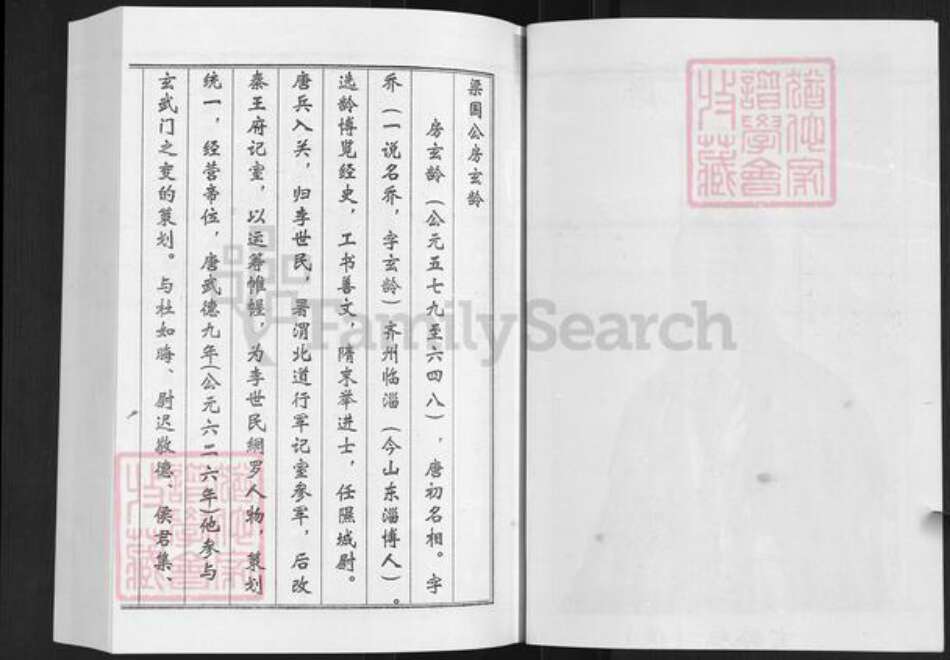 梁国公房玄龄
房玄龄（公元五七九至六四八），唐初名相。字
乔（一说名乔，字玄龄）齐州临淄（今山东淄博人）。
选龄博览经史，工书善文，隋末举进士，任隰城尉。
唐兵入关，归李世民，署渭北道行军记室参军，后改
秦王府记室，以运筹帷幄，为李世民網罗人物，策划
统一，经营帝位，唐武德九年(公元六二六年)他参与
玄武门之变的策划。与杜如晦、尉迟敬德、侯君集、
FamilySearch